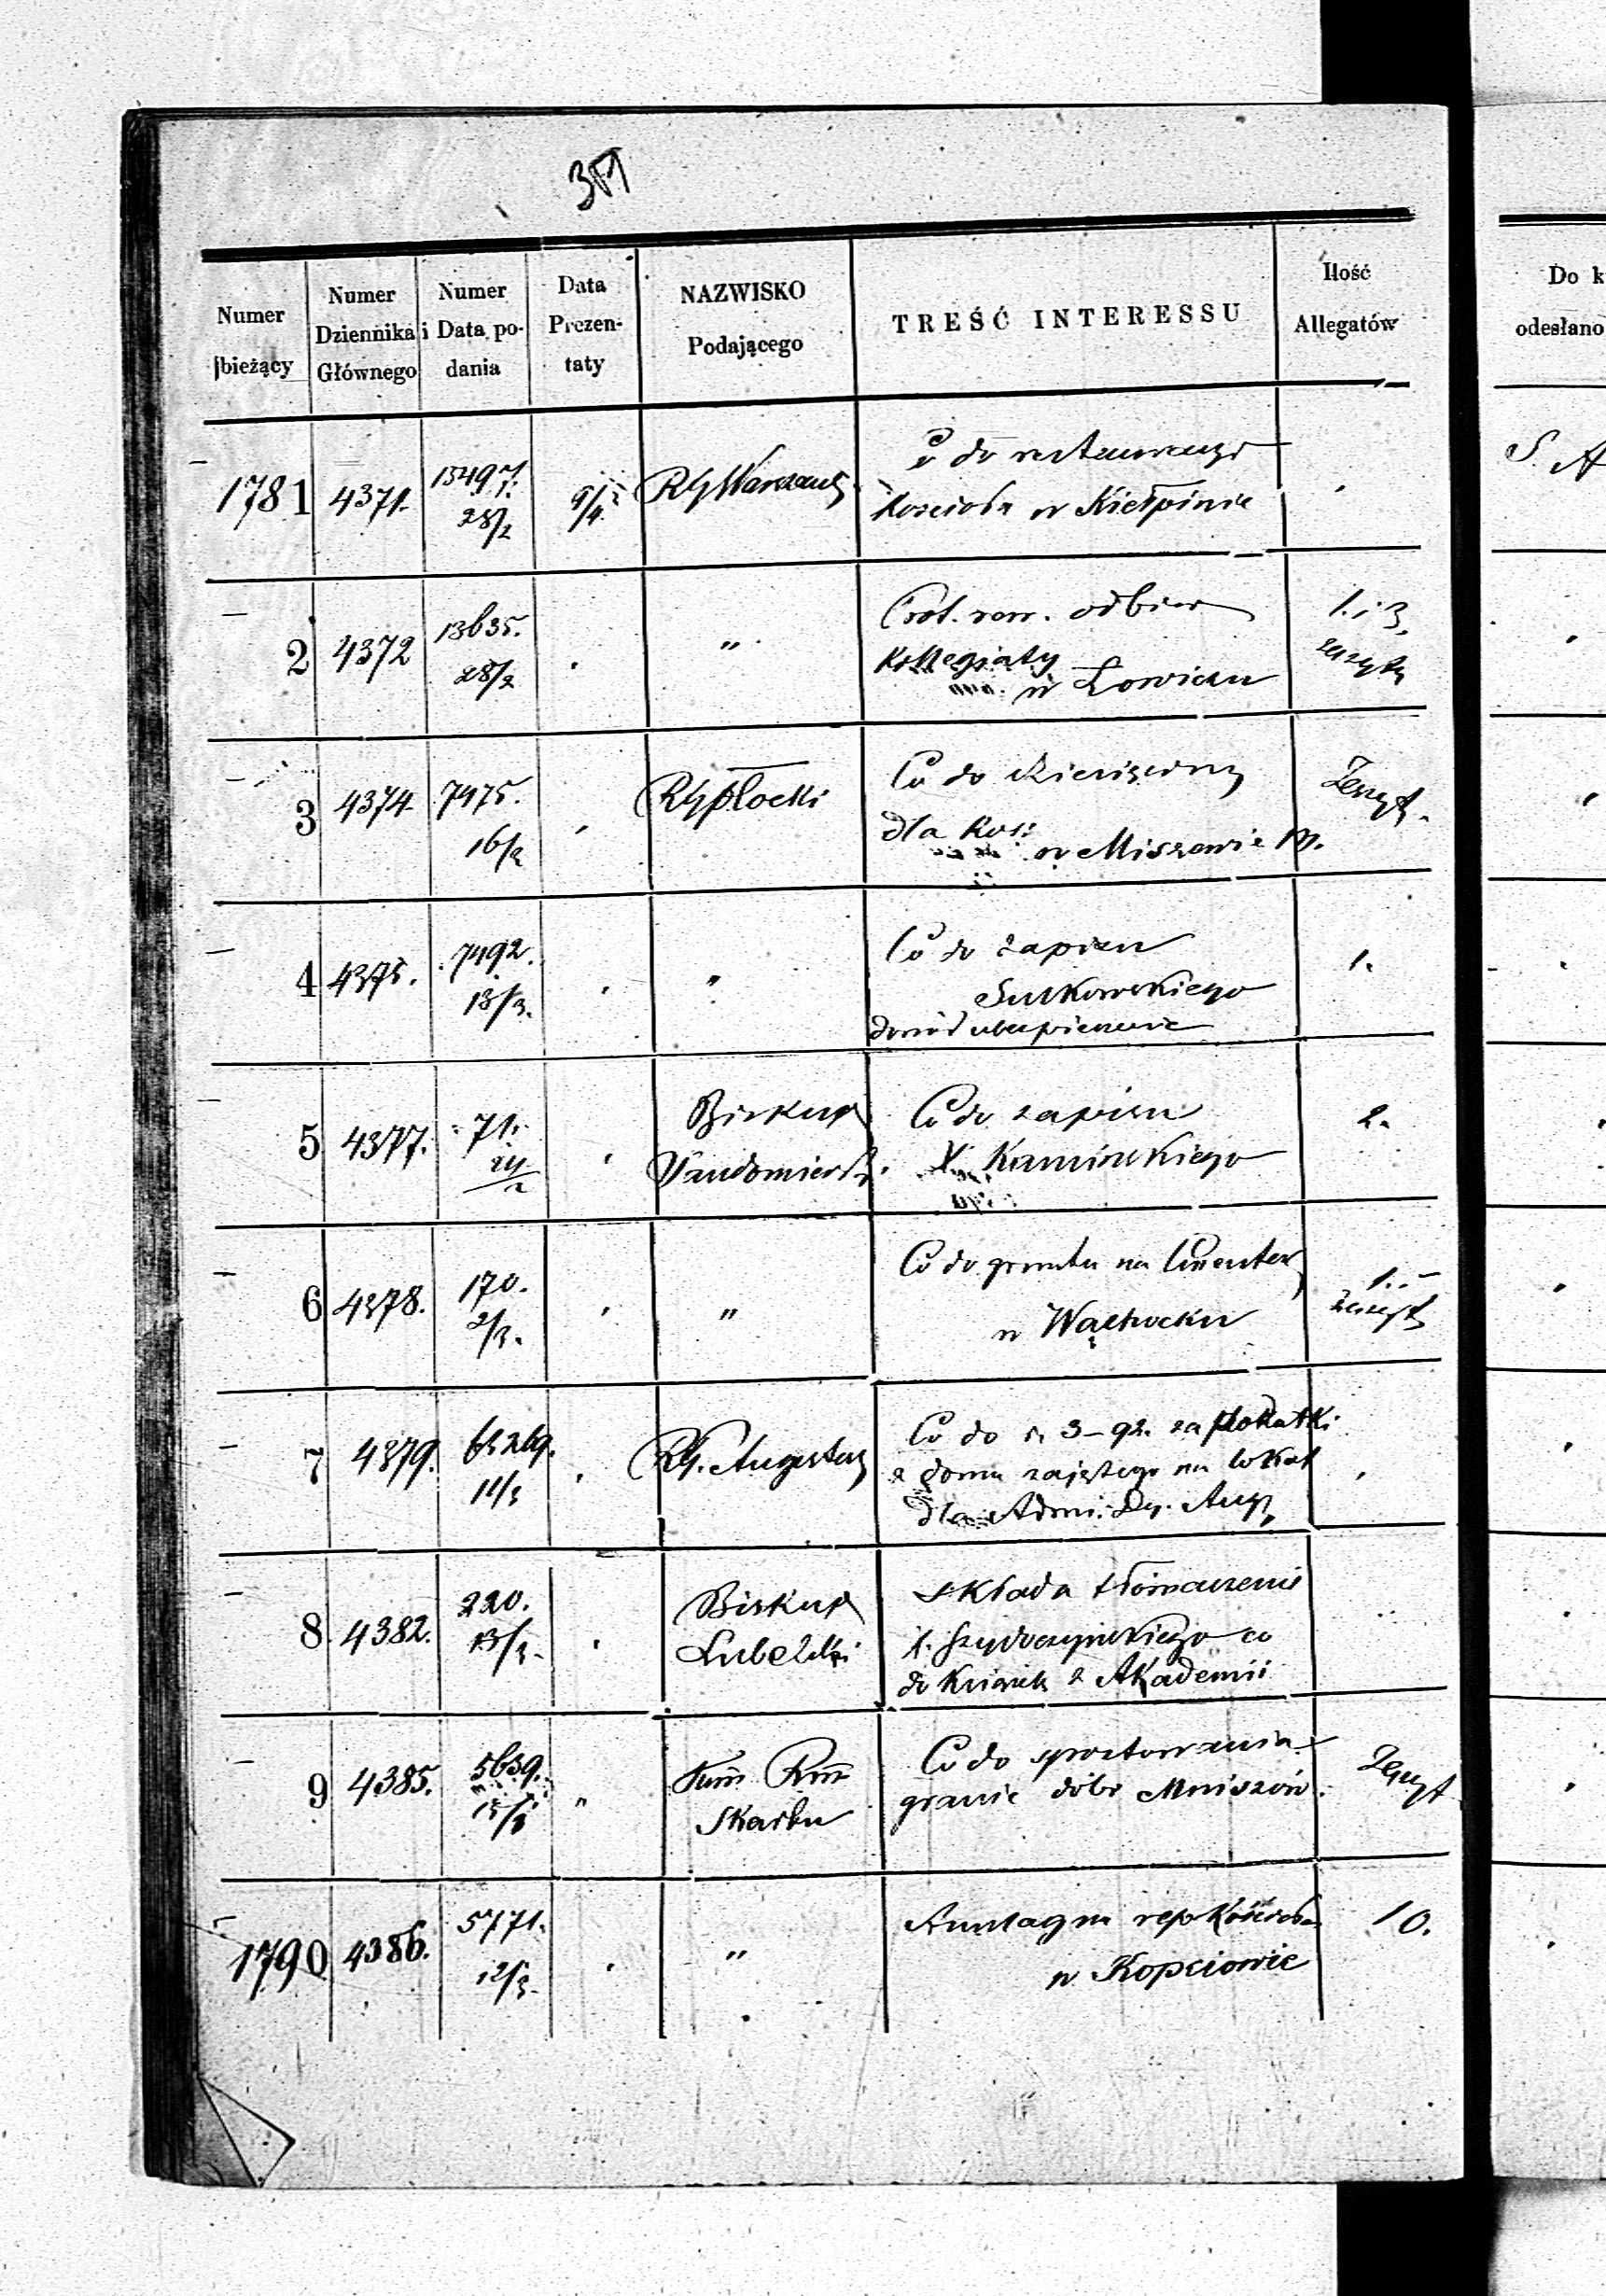 Numer bieżący | Numer Dziennika Głównego | Numer i Data podania | Data Prezentaty | NAZWISKO Podającego | TREŚĆ INTERESSU | Ilość Allegatów | Do k
odesłano
1781 4371. 13497. 28/2 9/4 RG Warszaws Co do restauracyi S. A
Kościoła w Kiełpinie
2 4372 13635. 28/2 " Prot. rew. odbior 1. i 3.
Kollegiaty w Łowiczu zeszyty
3 4374 7475. 16/2 RG Płocki Co do Zeszyt.
dla Koś: w Miszewie M.
4 4375. 7492. 13/3. " Co do zapisu 1.
Sutkowskiego
dowód ubezpieczenia
5 4377. 71. Biskup Co do zapisu 2.
Sandomiersk. X. Kamińskiego
6 4378. 170. 2/3. " Co do gruntu na Cmentarz 1.
w Wąchocku zeszyt
7 4379. 11/3 RG. Augustows Co do r. 3–92. za podatki
z domu zajętego na lokal
dla Admi. Dy. Aug.
8 4382. 220. 13/3. Biskup składa tłómaczenie
Lubelski X. co
do Książek z Akademii
9 4385. 5639. 15/3 " Kom Rząd Co do sprostowania Zeszyt
Skarbu granic dóbr Mniszów
1790 4386. 5771. 12/3. " rep Kościoła 10.
w Kopciowie